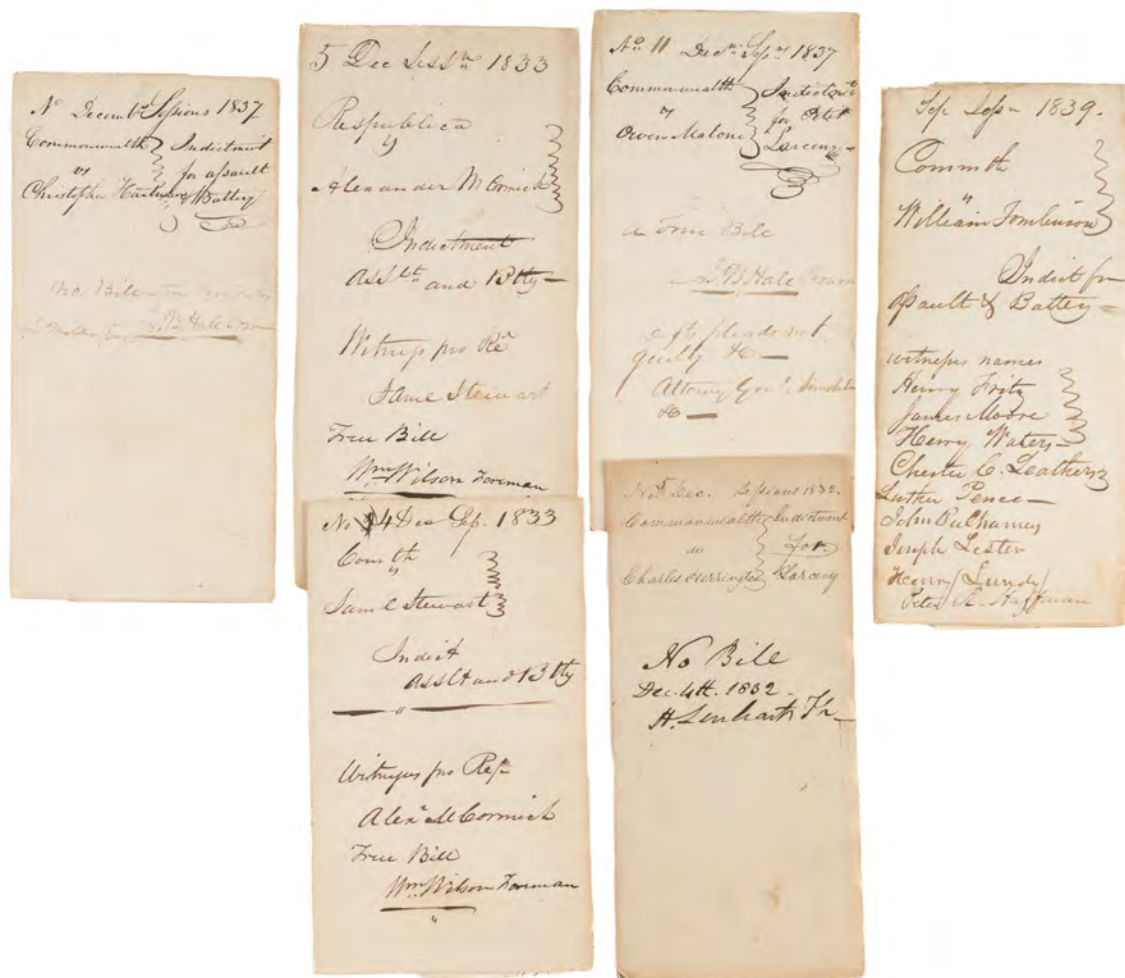 No Decembr Sessions 1837
Commonwealth
vs
Christopher
Indictment
for assault
& Battery
no Bill
J. B. Hale
5 Dec Sessn 1833
Respublica
vs
Alexander McCormick
Indictment
Asslt and Btty
Witness pro Re
Saml Stewart
True Bill
Wm. Wilson Foreman
No 4 Dec Sep. 1833
Comth
vs
Saml Stewart
Indict
Asslt and Btty
Witnesses pro Resp
Alexr McCormick
True Bill
Wm. Wilson Foreman
No. 11 Decr. Sepns 1837
Commonwealth
vs
Owen Malone
Indictmt
for Petit
Larceny
a True Bill
J. B. Hale Foreman
Deft pleads not
guilty &c
Attorney Genl. Similiter
&c
No 5 Dec. Sessions 1832.
Commonwealth
vs
Charles Herrington
Indictment
for
Larceny
No Bill
Dec. 4th. 1832
H. Lenhart Fr
Sep Sepn 1839.
Commth
vs
William Tomlinson
Indict for
Assault & Battery
witnesses names
Henry Fritz
James Moore
Henry Waters
Chester C. Leathers
Luther Pence
John
Joseph Lester
Henry Lundy
Peter A. Huffman